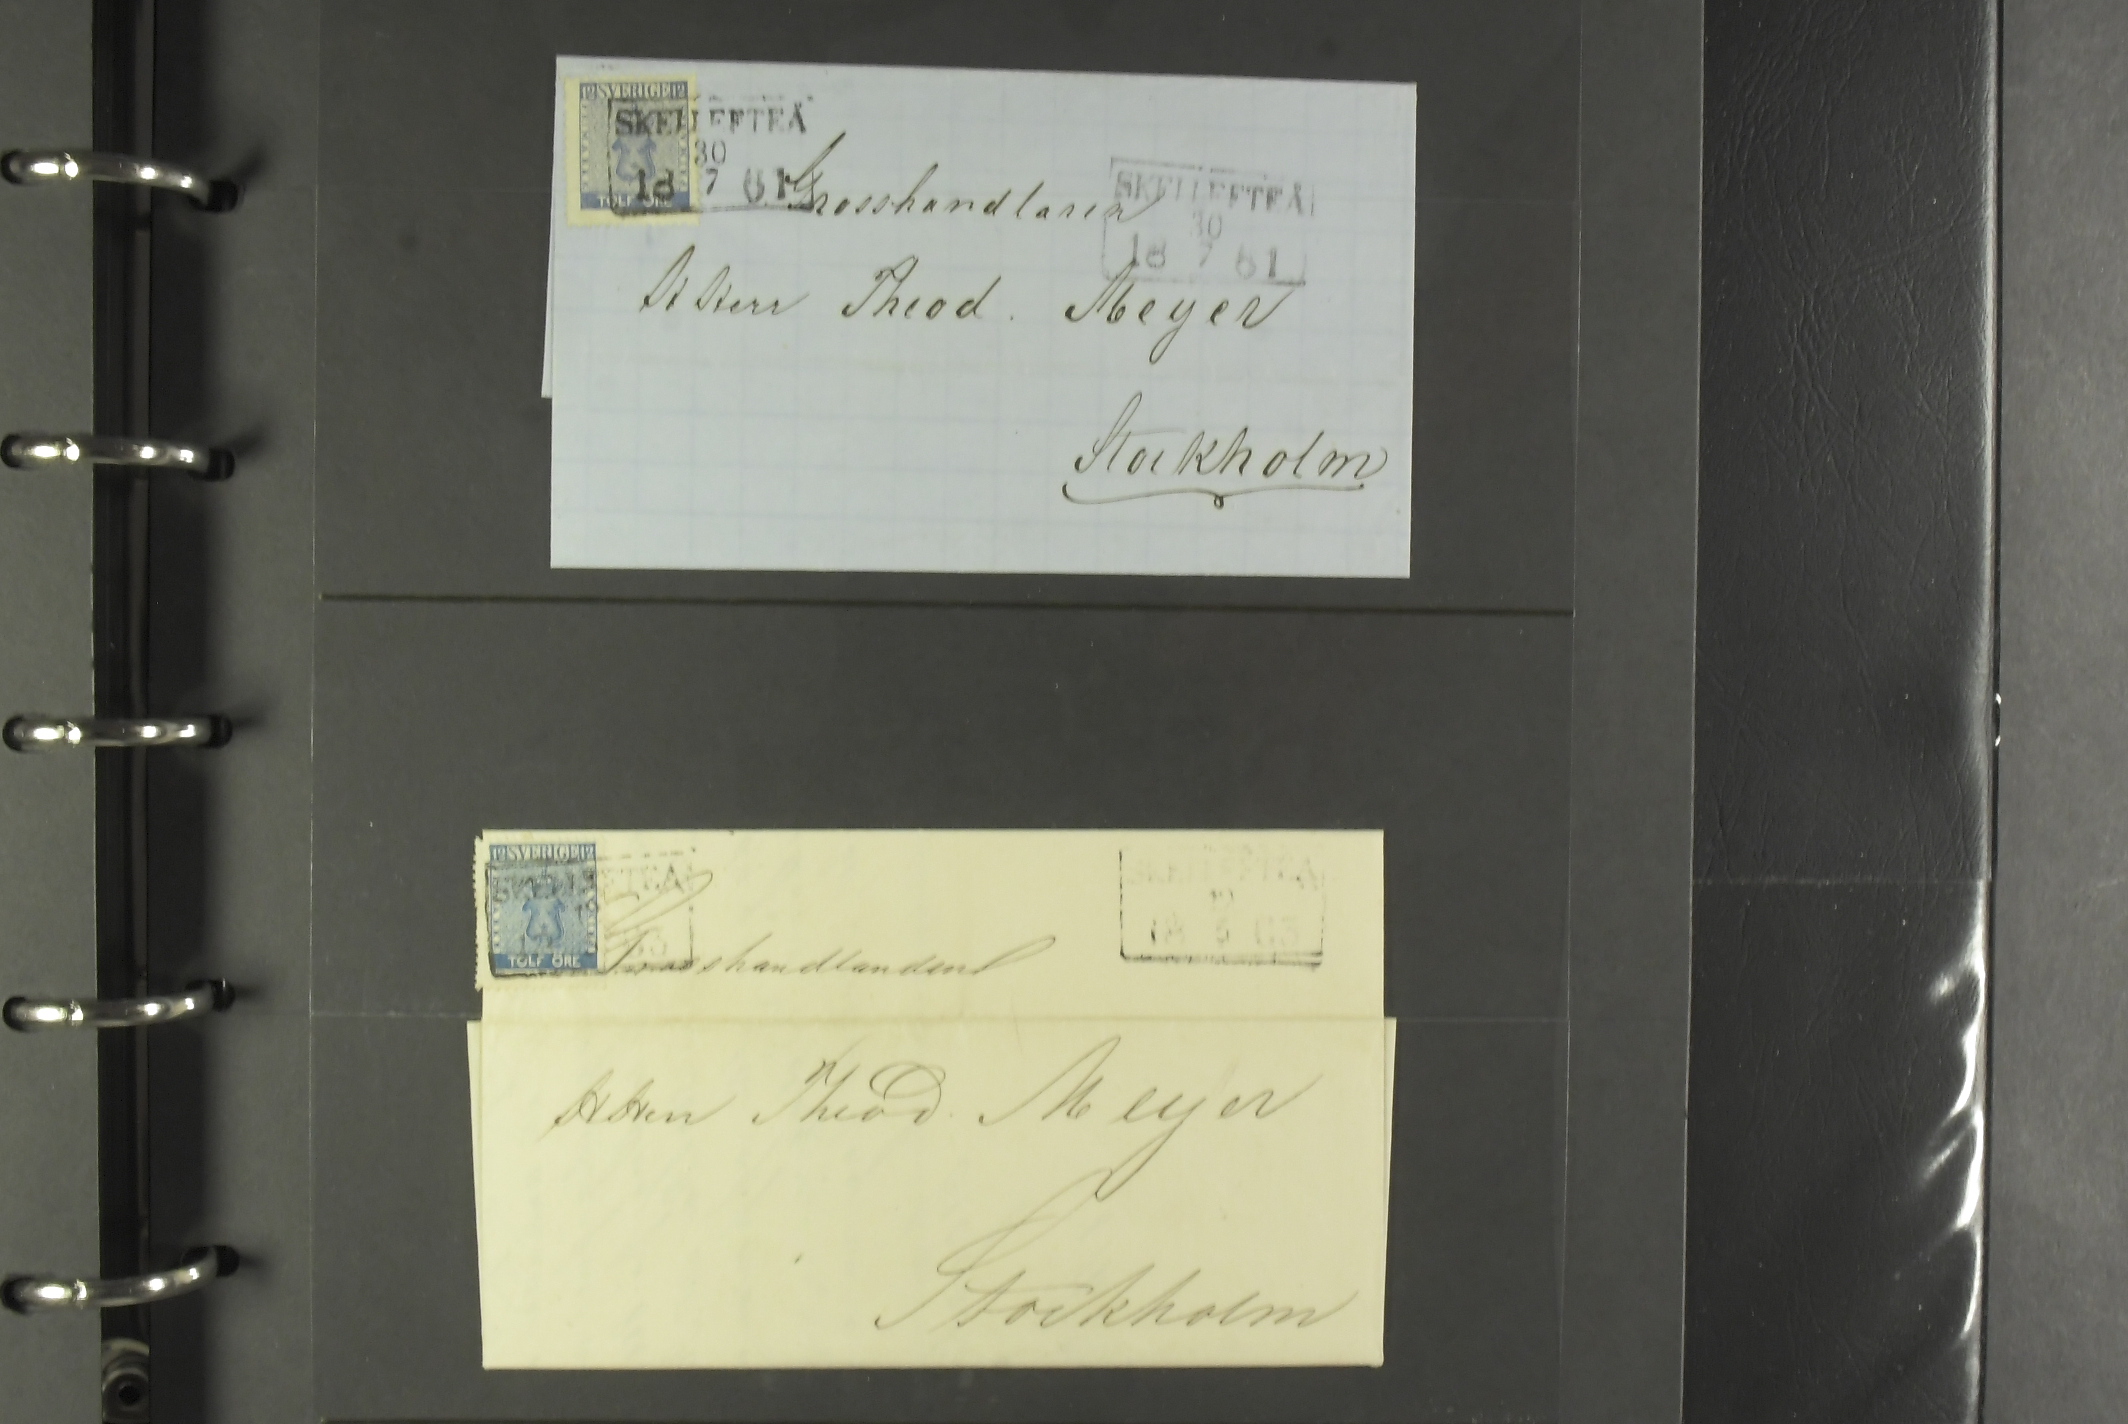 12 SVERIGE 12
TOLF ÖRE
SKELLEFTEÅ
30
18 7 61
SKELLEFTEÅ
30
18 7 61
Grosshandlaren
H Herr Theod. Meyer
Stockholm
12 SVERIGE 12
TOLF ÖRE
SKELLEFTEÅ
SKELLEFTEÅ
18 63
Grosshandlanden
H Herr Theod. Meyer
Stockholm